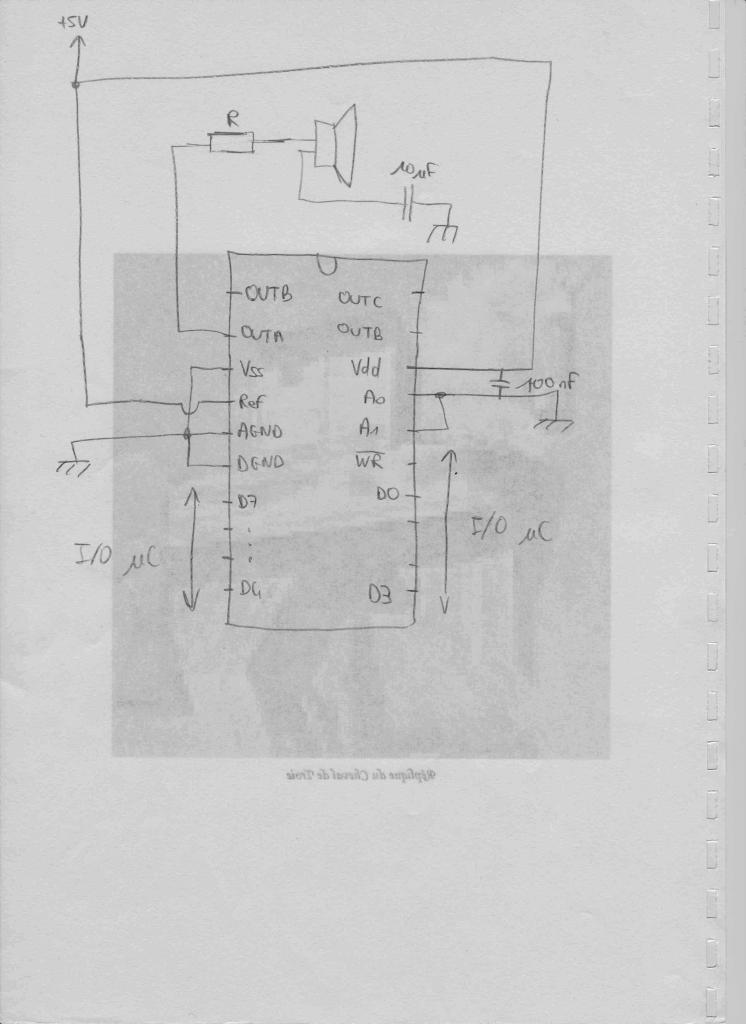 +5V
R
10µF
OUTB
OUTC
OUTA
OUTB
Vss
Vdd
100nF
Ref
A0
AGND
A1
DGND
WR
D7
D0
I/O µC
I/O µC
D4
D3
Réplique du Cheval de Troie